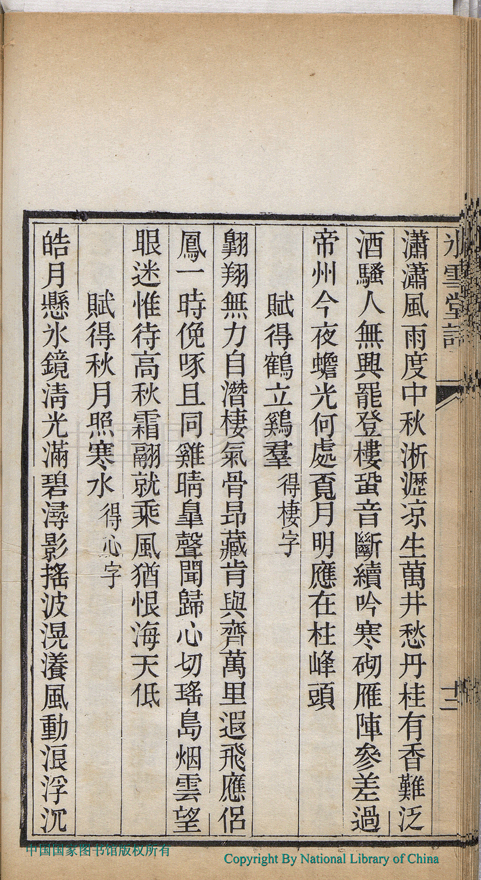 冰雪堂詩
十二
瀟瀟風雨度中秋淅瀝凉生萬井愁丹桂有香難泛
酒騷人無興罷登樓蛩音斷續吟寒砌雁陣參差過
帝州今夜蟾光何處覔月明應在桂峰頭
賦得鶴立鷄羣得棲字
翺翔無力自潛棲氣骨昂藏肯與齊萬里遐飛應侶
鳳一時俛啄且同雞晴臯聲聞歸心切瑤島烟雲望
眼迷惟待高秋霜翮就乘風猶恨海天低
賦得秋月照寒水得心字
皓月懸氷鏡淸光滿碧潯影搖波滉瀁風動浪浮沉
中国国家图书馆版权所有
Copyright By National Library of China